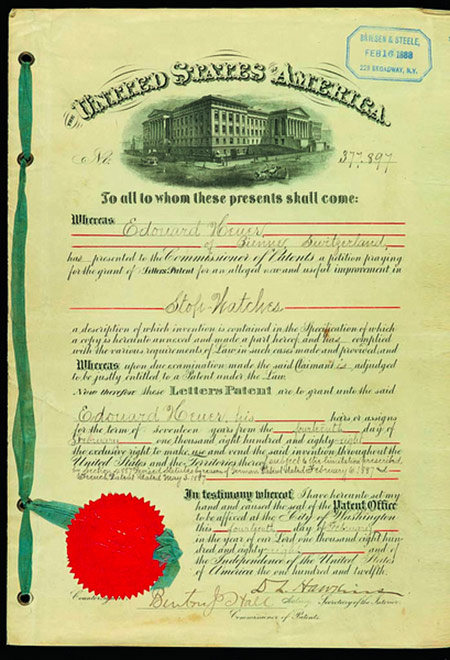 BRIESEN & STEELE,
FEB 16 1888
229 BROADWAY, N.Y.
THE UNITED STATES OF AMERICA.
No. 377,897
To all to whom these presents shall come:
Whereas Edouard Heuer,
of Bienne, Switzerland,
has presented to the Commissioner of Patents a petition praying
for the grant of Letters Patent for an alleged new and useful improvement in
Stop-Watches
a description of which invention is contained in the Specification of which
a copy is hereunto annexed and made a part hereof, and has complied
with the various requirements of Law in such cases made and provided, and
Whereas upon due examination made the said Claimant is adjudged
to be justly entitled to a Patent under the Law.
Now therefore these Letters Patent are to grant unto the said
Edouard Heuer, his heirs or assigns
for the term of seventeen years from the fourteenth day of
February one thousand eight hundred and eighty-eight
the exclusive right to make, use and vend the said invention throughout the
United States and the Territories thereof, subject to the limitation prescribed
by Section 4887 Revised Statutes by reason of German Patent dated February 6, 1887 &
French Patent dated May 3, 1887
In testimony whereof I have hereunto set my
hand and caused the seal of the Patent Office
to be affixed at the City of Washington
this fourteenth day of February
in the year of our Lord one thousand eight hun-
dred and eighty-eight and of
the Independence of the United States
of America the one hundred and twelfth.
D. L. Hawkins
Countersigned Benton J. Hall Acting Secretary of the Interior.
Commissioner of Patents.